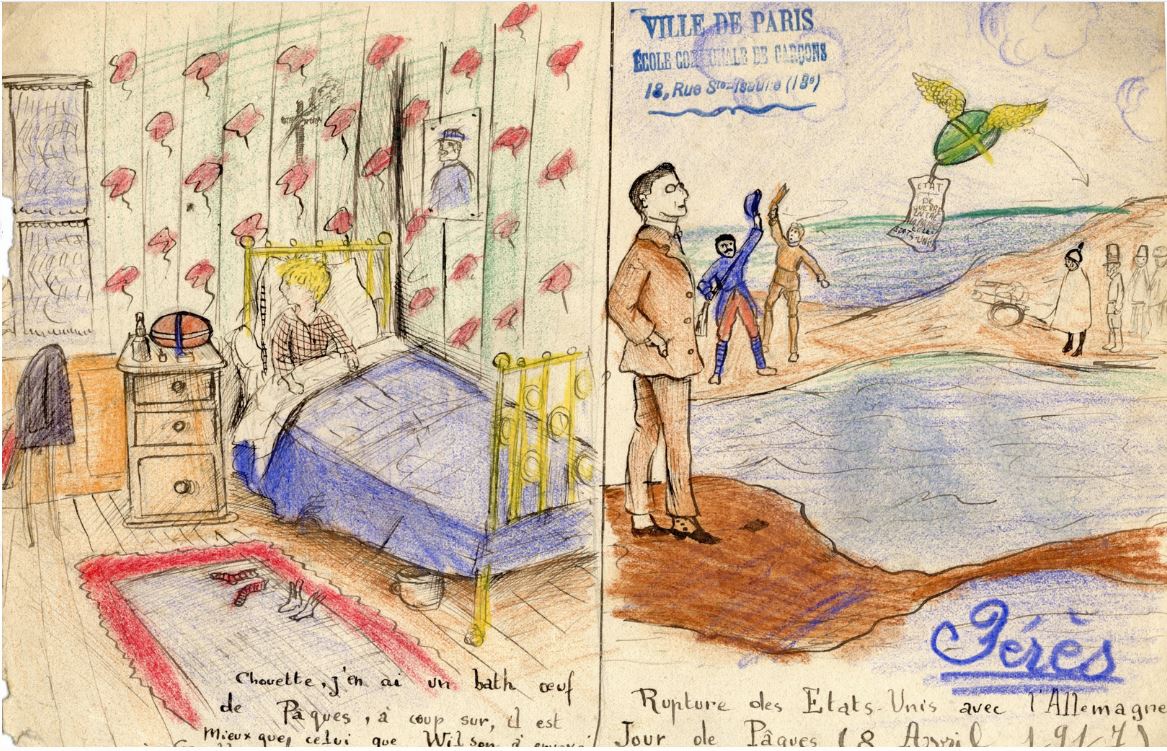 VILLE DE PARIS
ÉCOLE COMMUNALE DE GARÇONS
18, Rue Ste-Isaure (18e)
ÉTAT
DE
Pérès
Chouette, j'en ai un bath œuf
de Pâques, à coup sur, il est
Mieux que celui que Wilson à envoyé
Rupture des Etats-Unis avec l'Allemagne
Jour de Pâques (8 Avril 1917)